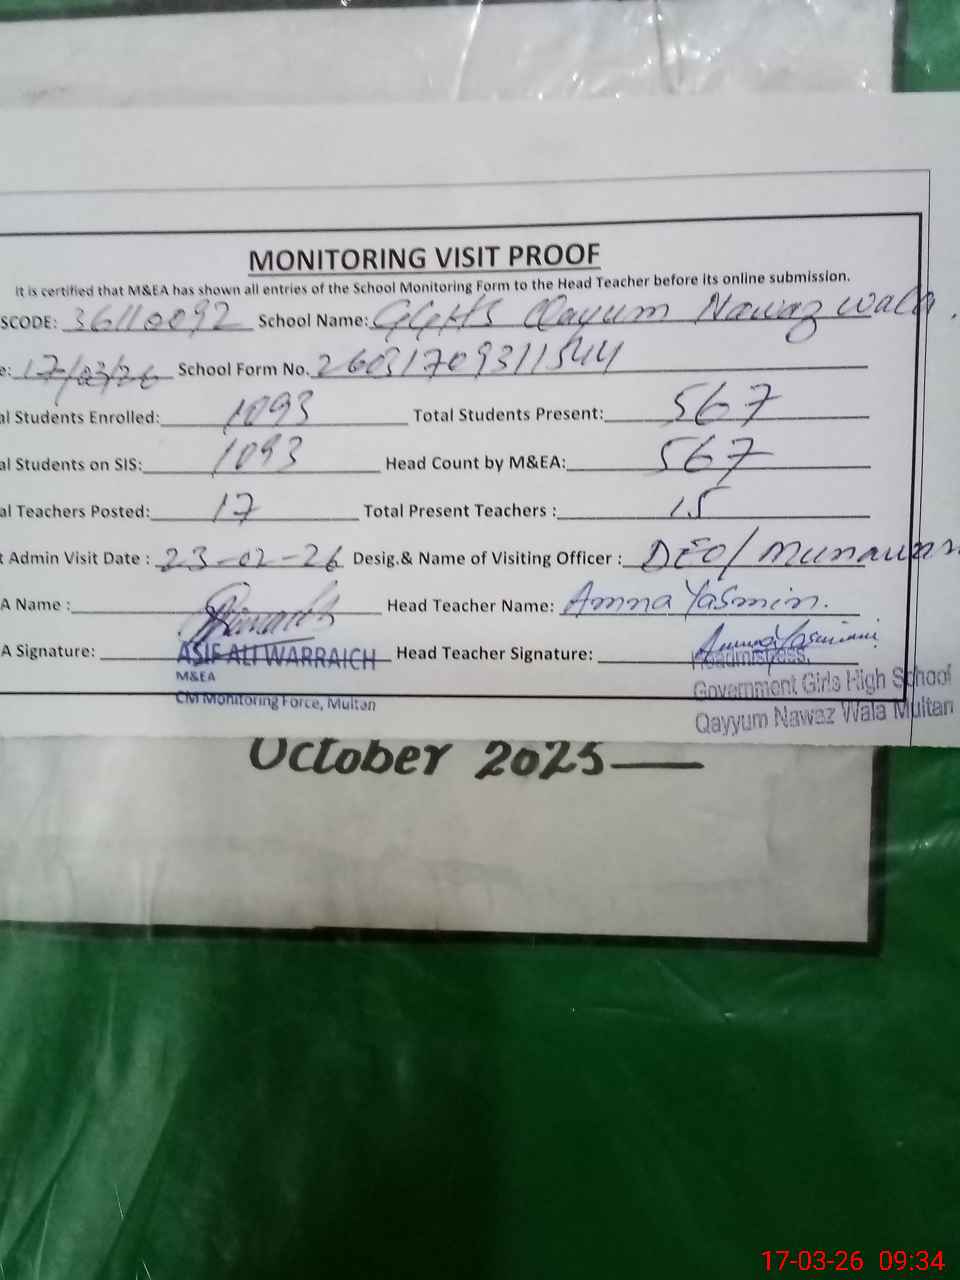 MONITORING VISIT PROOF
It is certified that M&EA has shown all entries of the School Monitoring Form to the Head Teacher before its online submission.
SCODE: 36110092 School Name: GGHS Qayum Nawaz wala.
e: 17/03/26 School Form No. 26031709311544
al Students Enrolled: 1093 Total Students Present: 567
al Students on SIS: 1093 Head Count by M&EA: 567
al Teachers Posted: 17 Total Present Teachers : 15
t Admin Visit Date : 23-02-26 Desig.& Name of Visiting Officer : DEO/ Munawar
A Name : Head Teacher Name: Amna Yasmin.
A Signature: ASIF ALI WARRAICH Head Teacher Signature: Amna Yasmin
M&EA Headmistress,
CM Monitoring Force, Multan Government Girls High School
Qayyum Nawaz Wala Multan
October 2025
17-03-26 09:34